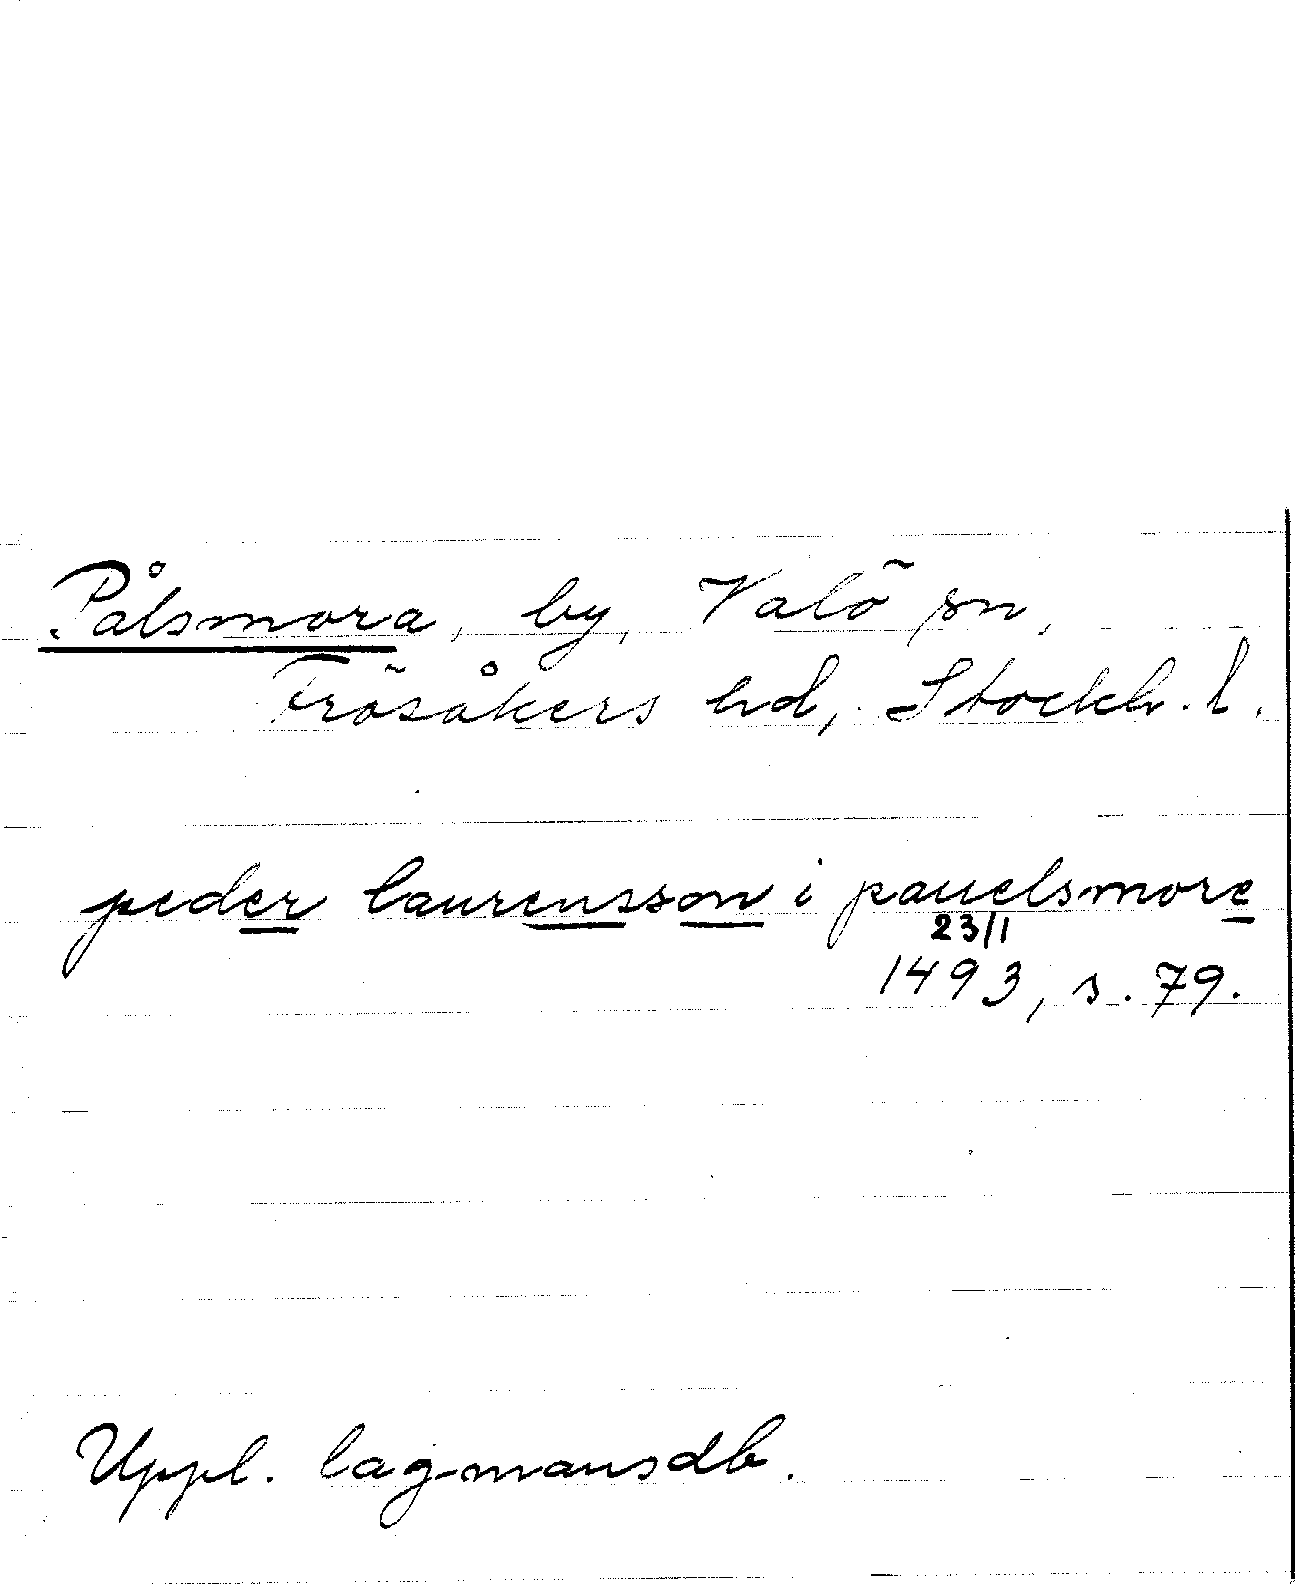 Pålsmora, by, Valö sn,
Frösåkers hd, Stockh. l.
peder laurensson i pauelsmore
23/1
1493, s. 79.
Uppl. lagmansdb.